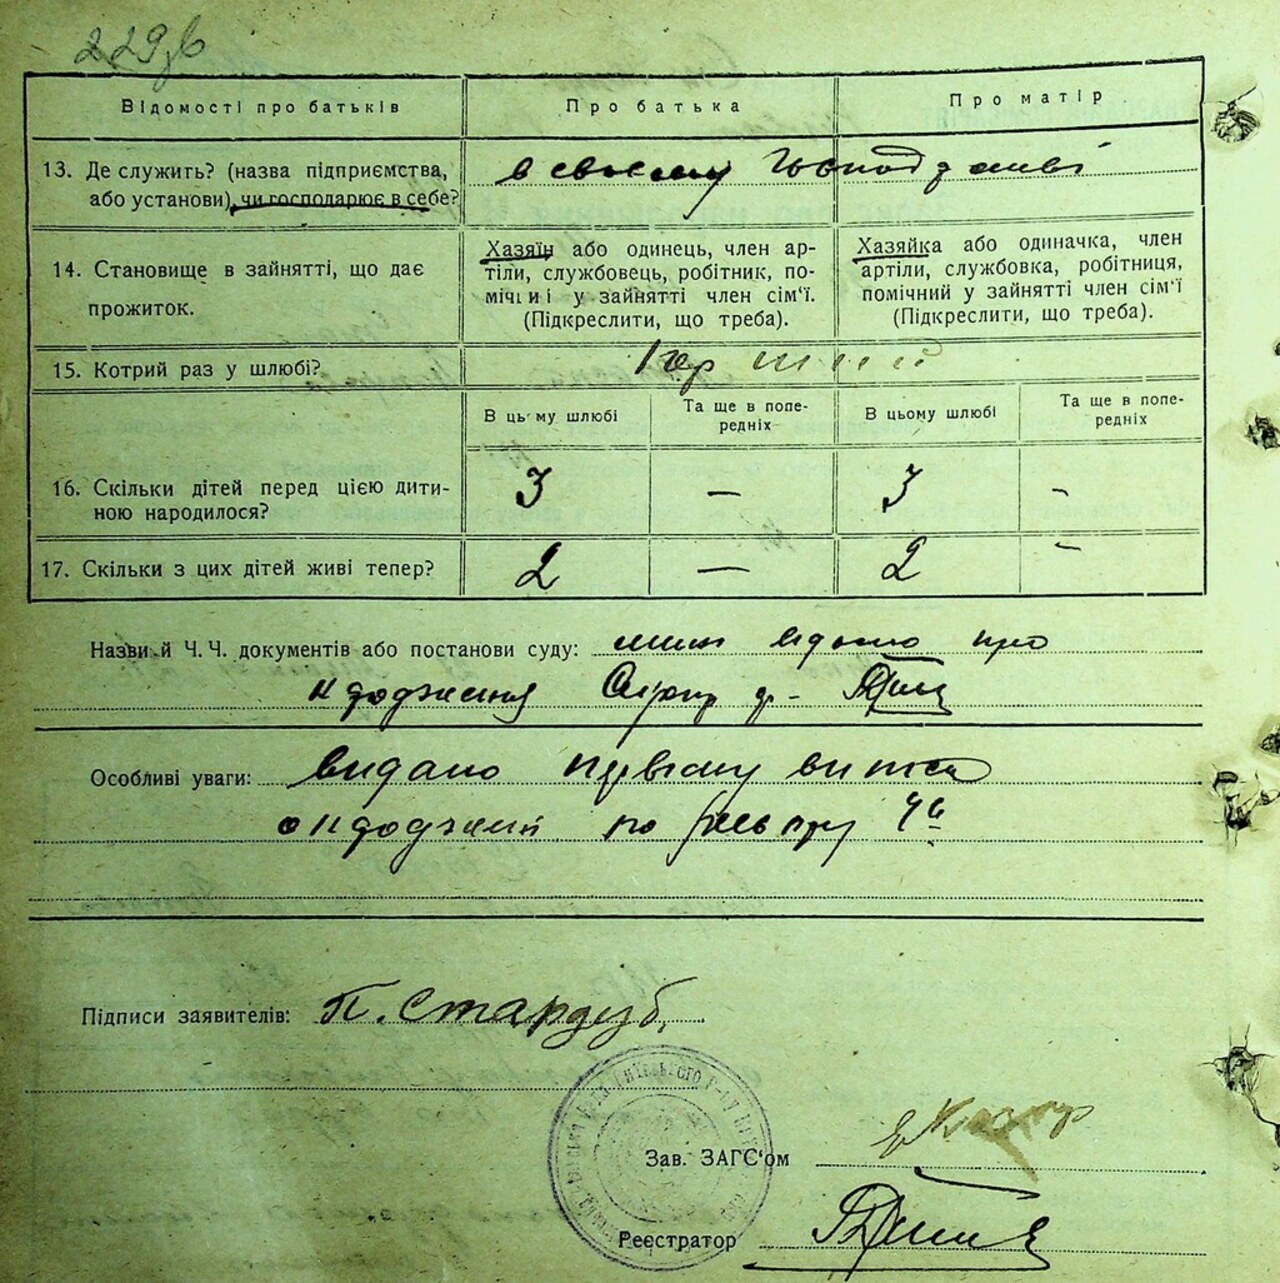 229зв
Відомості про батьків
Про батька
Про матір
13. Де служить? (назва підприємства,
або установи), чи господарює в себе?
в своєму господарстві
14. Становище в зайнятті, що дає
прожиток.
Хазяїн або одинець, член ар-
тіли, службовець, робітник, по-
мічниі у зайнятті член сім‘ї.
(Підкреслити, що треба).
Хазяйка або одиначка, член
артіли, службовка, робітниця,
помічний у зайнятті член сім‘ї
(Підкреслити, що треба).
15. Котрий раз у шлюбі?
Перший
В цьому шлюбі
Та ще в попе-
редніх
В цьому шлюбі
Та ще в попе-
редніх
16. Скільки дітей перед цією дити-
ною народилося?
3 — 3 -
17. Скільки з цих дітей живі тепер?
2 — 2 -
Назви й Ч. Ч. документів або постанови суду: про
Особливі уваги: видано
о по
Підписи заявителів: П. Стародуб.
Зав. ЗАГС‘ом
Реєстратор